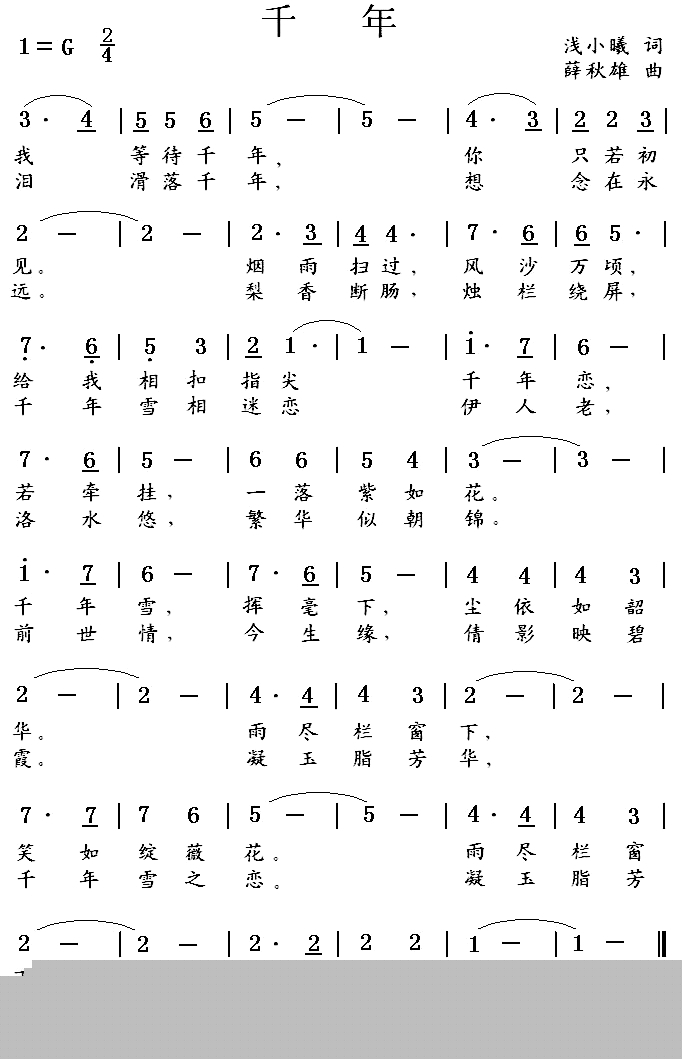 千 年
1=G 2/4
浅小曦 词
薛秋雄 曲
3· 4 | 5 5 6 | 5 — | 5 — | 4· 3 | 2 2 3 |
我 等待千 年， 你 只若初
泪 滑落千 年， 想 念在永
2 — | 2 — | 2· 3 | 4 4· | 7· 6 | 6 5· |
见。 烟 雨 扫 过， 风 沙 万 顷，
远。 梨 香 断 肠， 烛 栏 绕 屏，
7· 6 | 5 3 | 2 1· | 1 — | 1· 7 | 6 — |
给 我 相 扣 指 尖 千 年 恋，
千 年 雪 相 迷 恋 伊 人 老，
7· 6 | 5 — | 6 6 | 5 4 | 3 — | 3 — |
若 牵 挂， 一 落 紫 如 花。
洛 水 悠， 繁 华 似 朝 锦。
1· 7 | 6 — | 7· 6 | 5 — | 4 4 | 4 3 |
千 年 雪， 挥 毫 下， 尘 依 如 韶
前 世 情， 今 生 缘， 倩 影 映 碧
2 — | 2 — | 4· 4 | 4 3 | 2 — | 2 — |
华。 雨 尽 栏 窗 下，
霞。 凝 玉 脂 芳 华，
7· 7 | 7 6 | 5 — | 5 — | 4· 4 | 4 3 |
笑 如 绽 薇 花。 雨 尽 栏 窗
千 年 雪 之 恋。 凝 玉 脂 芳
2 — | 2 — | 2· 2 | 2 2 | 1 — | 1 — ‖